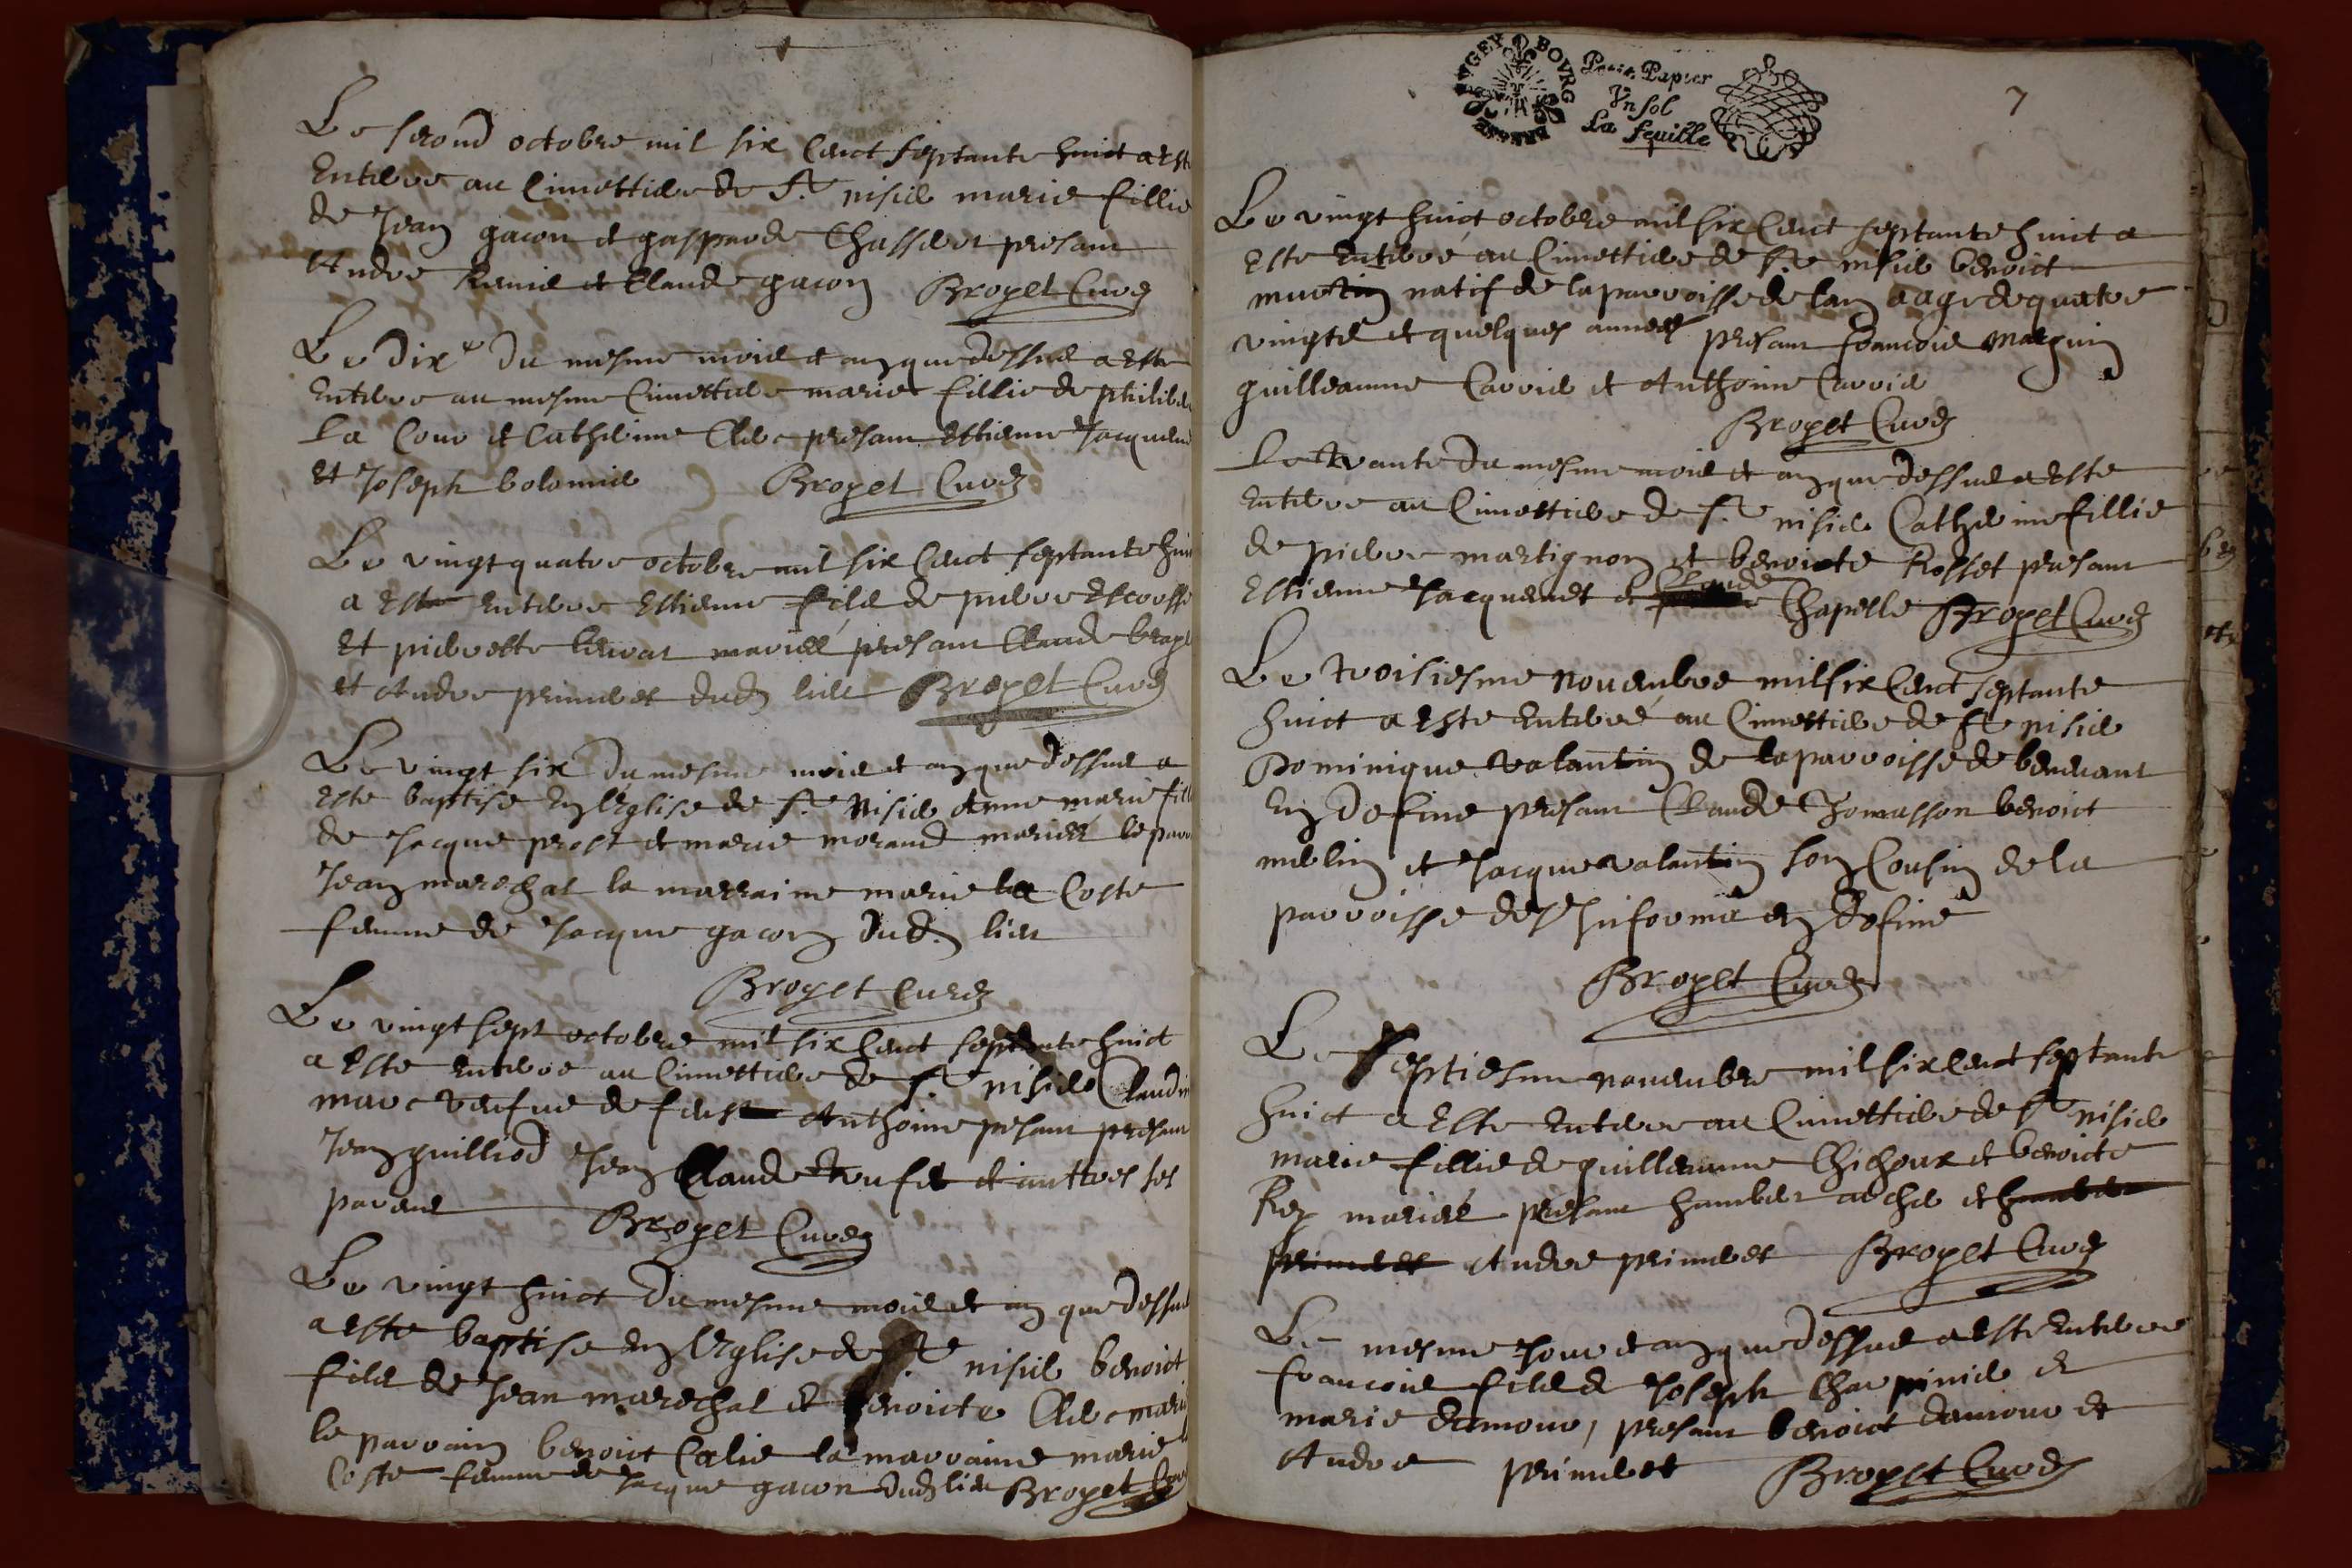 Le second octobre mil six cent septante huict a este
enterre au cimettiere de Ste nisier marie fillie
de Jean gacon et gasparde Chasset presant
Andre et Claude gacon Broyet Curé
Le dixe du mesme mois et an que dessus a este
enterre au mesme cimettiere marie fillie de philib
La Cour et Catherine Clerc presant estienne Jacquem
et Joseph bolomie Broyet Curé
Le vingt quatre octobre mil six cent septante hui
a este enterre estienne fils de pierre
et pierrette mariés presant Claude broye
et Andre dud lieu Broyet Curé
Le vingt six du mesme mois et an que dessus a
este baptise en leglise de Ste Nisier Anne marie fill
de Jacque prost et marie morand mariés le parr
Jean marechal la marraine marie la Coste
femme de Jacque gacon dud. lieu
Broyet Curé
Le vingt sept octobre mil six cent septante huict
a este enterre au cimettiere de Ste nisier Claudi
marc veufue de feust Anthoine presant
Jean guilliod Jean Claude et autres ses
parens Broyet Curé
Le vingt huict du mesme mois et an que dessus
a este baptise en leglise de Ste nisier benoict
fils de Jean marechal et benoicte Clerc marié
le parrain benoict Calie la marraine marie
Coste femme de Jacque gacon dud lieu Broyet Cur
BVGEY BOVRG
Petit Papier
Vn sol
La feuille
7
Le vingt huict octobre mil six cent septante huict a
este enterré au cimettiere de Ste nisier benoict
natif de la parroisse de aage de quatre
vingts et quelques annees presant francois
guilleaume Carrie et Anthoine Carrie
Broyet Curé
Le trante du mesme mois et an que dessus a este
enterre au cimettiere de Ste nisier Catherine fillie
de pierre martignon et benoicte Rosset presant
Estienne Jacquemet et Claude Chapelle Broyet Curé
Le troisiesme nouembre mil six cent septante
huict a este enterré au cimettiere de Ste nisier
Dominique Valantin de la parroisse de
en dofine presant Claude Thomasson benoict
merlin et Jacque valantin son Cousin de la
parroisse de en dofine
Broyet Curé
Le septiesme nouembre mil six cent septante
huict a este enterre au cimettiere de Ste nisier
marie fillie de guilleaume Chichoux et benoicte
Rey mariés presant humber et humber
Andre Broyet Curé
Le mesme Jour et an que dessus a este enterre
francois fils de Joseph Charpinie et
marie damour, presant benoict damour et
Andre Broyet Curé